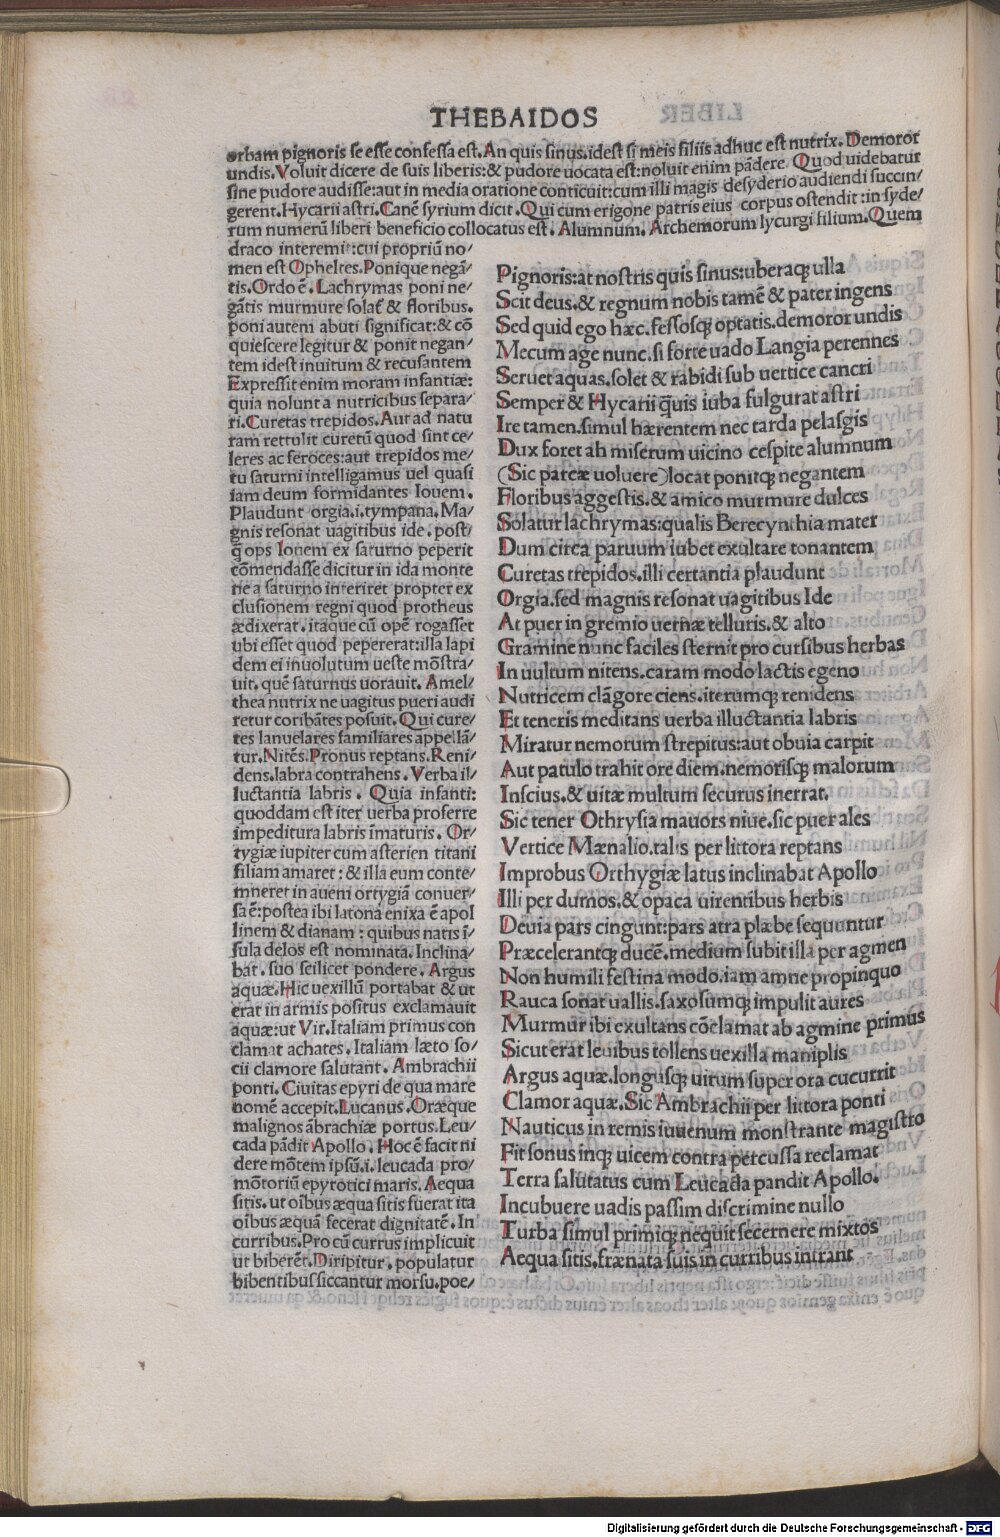 THEBAIDOS
orbam pignoris se esse confessa est. An quis sinus. idest si meis filiis adhuc est nutrix. Demoror
undis. Voluit dicere de suis liberis: & pudore uocata est: noluit enim pādere. Quod uidebatur
sine pudore audisse: aut in media oratione conticuit: cum illi magis desyderio audiendi succin/
gerent. Hycarii astri. Canē syrium dicit. Qui cum erigone patris eius corpus ostendit: in syde/
rum numerū liberi beneficio collocatus est. Alumnum. Archemorum lycurgi filium. Quem
draco interemit: cui propriū no/
men est Opheltes. Ponique negā/
tis. Ordo ē. Lachrymas poni ne/
gātis murmure solat & floribus.
poni autem abuti significat: & cō
quiescere legitur & ponit negan/
tem idest inuitum & recusantem
Expressit enim moram infantiæ:
quia nolunt a nutricibus separa/
ri. Curetas trepidos. Aut ad natu
ram rettulit curetū quod sint ce/
leres ac feroces: aut trepidos me/
tu saturni intelligamus uel quasi
iam deum formidantes Iouem.
Plaudunt orgia. i. tympana. Ma/
gnis resonat uagitibus ide. post/
q̄ ops Iouem ex saturno peperit
cōmendasse dicitur in ida monte
ne a saturno interiret propter ex
clusionem regni quod protheus
ædixerat. itaque cū opē rogasset
ubi esset quod pepererat: illa lapi
dem ei inuolutum ueste mōstra/
uit. quē saturnus uorauit. Amel/
thea nutrix ne uagitus pueri audi
retur coribātes posuit. Qui cure/
tes lanuelares familiares appellā/
tur. Nitēs. Pronus reptans. Reni/
dens. labra contrahens. Verba il/
luctantia labris. Quia infanti:
quoddam est iter uerba proferre
impeditura labris īmaturis. Or/
tygiæ iupiter cum asterien titani
filiam amaret: & illa eum conte/
mneret in auem ortygiā conuer/
sa ē: postea ibi latona enixa ē apol
linem & dianam: quibus natis ī/
sula delos est nominata. Inclina/
bat. suo scilicet pondere. Argus
aquæ. Hic uexillū portabat & ut
erat in armis positus exclamauit
aquæ: ut Vir. Italiam primus con
clamat achates. Italiam læto so/
cii clamore salutant. Ambrachii
ponti. Ciuitas epyri de qua mare
nomē accepit. Lucanus. Oræque
malignos ābrachiæ portus. Leu/
cada pādit Apollo. Hoc ē facit ni
dere mōtem ipsū. i. leucada pro/
mōtoriū epyrotici maris. Aequa
sitis. ut oībus æqua sitis fuerat ita
oībus æquā fecerat dignitatē. In
curribus. Pro cū currus implicuit
ut biberēt. Diripitur. populatur
bibentibus siccantur morsu. poe/
Pignoris: at nostris quis sinus: uberaq; ulla
Scit deus. & regnum nobis tamē & pater ingens
Sed quid ego hæc. fessosq; optatis. demoror undis
Mecum age nunc. si forte uado Langia perennes
Seruet aquas. solet & rabidi sub uertice cancri
Semper & Hycarii q̄uis iuba fulgurat astri
Ire tamen. simul hærentem nec tarda pelasgis
Dux foret ah miserum uicino cespite alumnum
(Sic parcæ uoluere) locat ponitq; negantem
Floribus aggestis. & amico murmure dulces
Solatur lachrymas: qualis Berecynthia mater
Dum circa paruum iubet exultare tonantem
Curetas trepidos. illi certantia plaudunt
Orgia. sed magnis resonat uagitibus Ide
At puer in gremio uernæ telluris. & alto
Gramine nunc faciles sternit pro cursibus herbas
In uultum nitens. caram modo lactis egeno
Nutricem clāgore ciens. iterumq; renidens
Et teneris meditans uerba illuctantia labris
Miratur nemorum strepitus: aut obuia carpit
Aut patulo trahit ore diem. nemorisq; malorum
Inscius. & uitæ multum securus inerrat.
Sic tener Othrysia mauors niue. sic puer ales
Vertice Mænalio. talis per littora reptans
Improbus Orthygiæ latus inclinabat Apollo
Illi per dumos. & opaca uirentibus herbis
Deuia pars cingunt: pars atra plæbe sequuntur
Præcelerantq; ducē. medium subit illa per agmen
Non humili festina modo. iam amne propinquo
Rauca sonat uallis. saxosumq; impulit aures
Murmur ibi exultans cōclamat ab agmine primus
Sicut erat leuibus tollens uexilla maniplis
Argus aquæ. longusq; uirum super ora cucurrit
Clamor aquæ. Sic Ambrachii per littora ponti
Nauticus in remis iuuenum monstrante magistro
Fit sonus inq; uicem contra percussa reclamat
Terra salutatus cum Leucada pandit Apollo.
Incubuere uadis passim discrimine nullo
Turba simul primiq; nequit secernere mixtos
Aequa sitis. frænata suis in curribus intrant
Digitalisierung gefördert durch die Deutsche Forschungsgemeinschaft - DFG